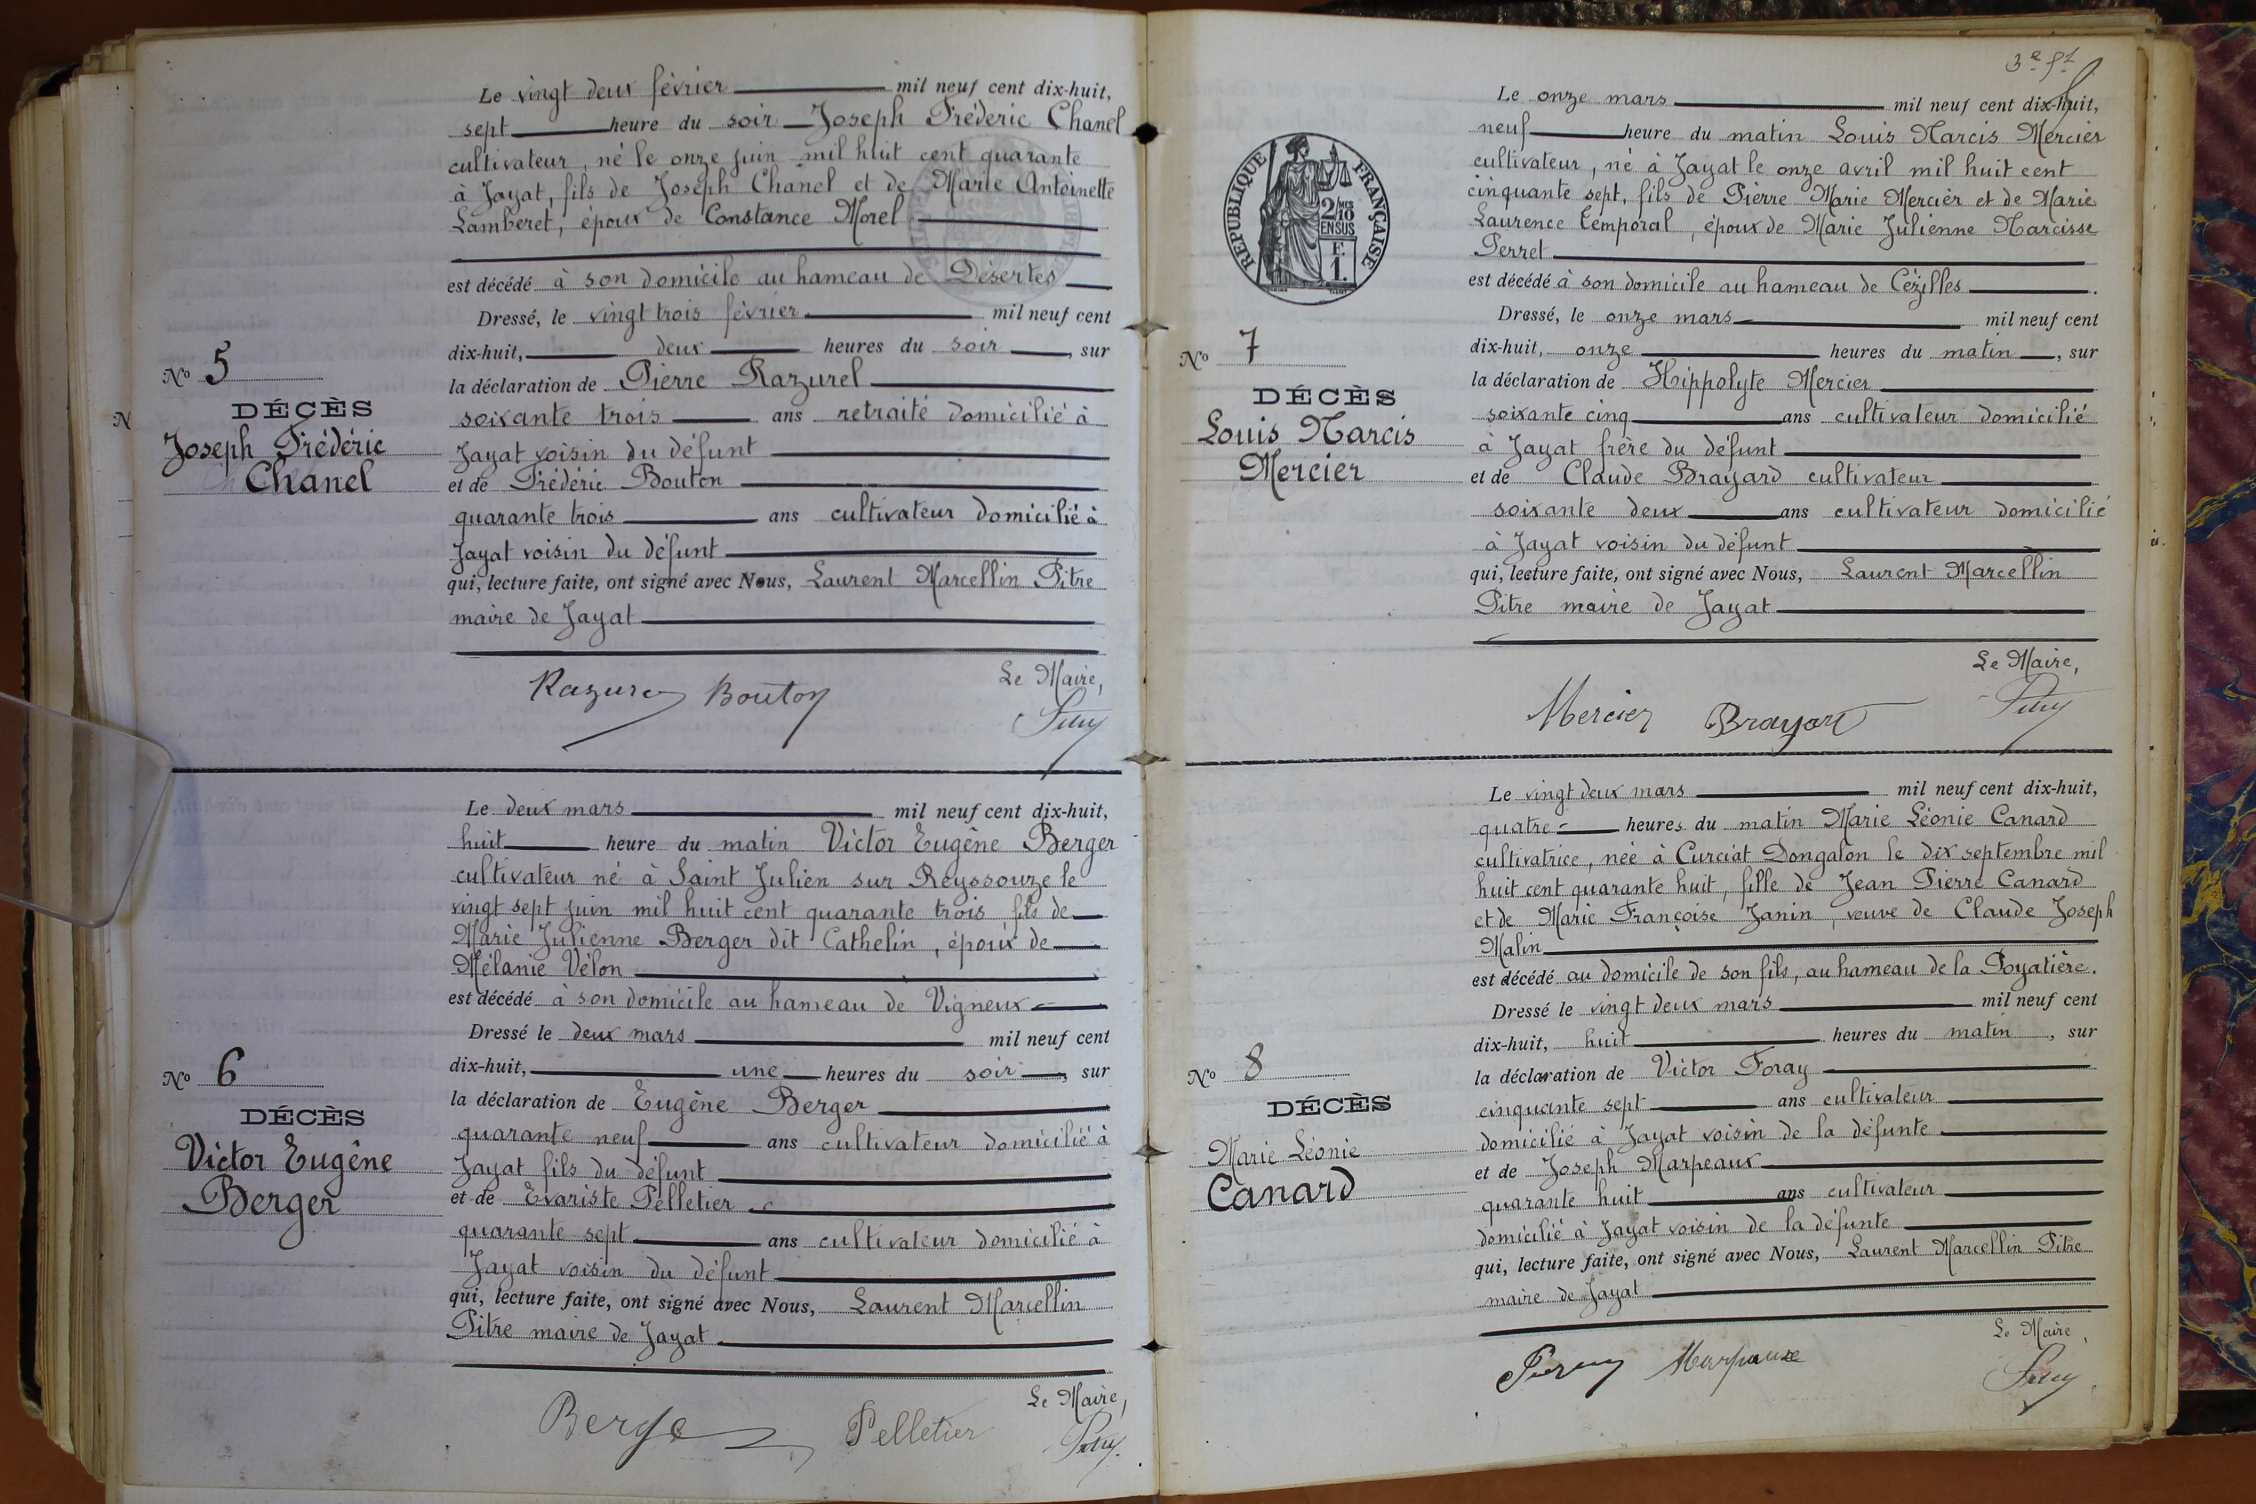 Le vingt deux février mil neuf cent dix-huit,
sept heure du soir Joseph Frédéric Chanel
cultivateur, né le onze juin mil huit cent quarante
à Jayat, fils de Joseph Chanel et de Marie Antoinette
Lamberet, époux de Constance Morel
est décédé à son domicile au hameau de Désertes
Dressé, le vingt trois février mil neuf cent
dix-huit, deux heures du soir, sur
la déclaration de Pierre Razurel
soixante trois ans retraité domicilié à
Jayat voisin du défunt
et de Frédéric Bouton
quarante trois ans cultivateur domicilié à
Jayat voisin du défunt
qui, lecture faite, ont signé avec Nous, Laurent Marcellin Pitre
maire de Jayat
Le Maire,
Razurel Bouton
No 5
DÉCÈS
Joseph Frédéric
Chanel
Le deux mars mil neuf cent dix-huit,
huit heure du matin Victor Eugène Berger
cultivateur né à Saint Julien sur Reyssouze le
vingt sept juin mil huit cent quarante trois fils de
Marie Julienne Berger dit Cathelin, époux de
Mélanie Vélon
est décédé à son domicile au hameau de Vigneux
Dressé le deux mars mil neuf cent
dix-huit, une heures du soir, sur
la déclaration de Eugène Berger
quarante neuf ans cultivateur domicilié à
Jayat fils du défunt
et de Evariste Pelletier
quarante sept ans cultivateur domicilié à
Jayat voisin du défunt
qui, lecture faite, ont signé avec Nous, Laurent Marcellin
Pitre maire de Jayat
Le Maire,
Berger Pelletier
No 6
DÉCÈS
Victor Eugène
Berger
3e ft
RÉPUBLIQUE FRANÇAISE
2/10
EN SUS
F.
1.
Le onze mars mil neuf cent dix-huit,
neuf heure du matin Louis Narcis Mercier
cultivateur, né à Jayat le onze avril mil huit cent
cinquante sept, fils de Pierre Marie Mercier et de Marie
Laurence Temporal, époux de Marie Julienne Narcisse
Perret
est décédé à son domicile au hameau de Cézilles.
Dressé, le onze mars mil neuf cent
dix-huit, onze heures du matin, sur
la déclaration de Hippolyte Mercier
soixante cinq ans cultivateur domicilié
à Jayat frère du défunt
et de Claude Brayard cultivateur
soixante deux ans cultivateur domicilié
à Jayat voisin du défunt
qui, lecture faite, ont signé avec Nous, Laurent Marcellin
Pitre maire de Jayat
Le Maire,
Mercier Brayard
No 7
DÉCÈS
Louis Narcis
Mercier
Le vingt deux mars mil neuf cent dix-huit,
quatre heures du matin Marie Léonie Canard
cultivatrice, née à Curciat Dongalon le dix septembre mil
huit cent quarante huit, fille de Jean Pierre Canard
et de Marie Françoise Janin, veuve de Claude Joseph
Malin
est décédé au domicile de son fils, au hameau de la Poyatière.
Dressé le vingt deux mars mil neuf cent
dix-huit, huit heures du matin, sur
la déclaration de Victor Foray
cinquante sept ans cultivateur
domicilié à Jayat voisin de la défunte
et de Joseph Marpeaux
quarante huit ans cultivateur
domicilié à Jayat voisin de la défunte
qui, lecture faite, ont signé avec Nous, Laurent Marcellin Pitre
maire de Jayat
Le Maire,
Marpaux
No 8
DÉCÈS
Marie Léonie
Canard